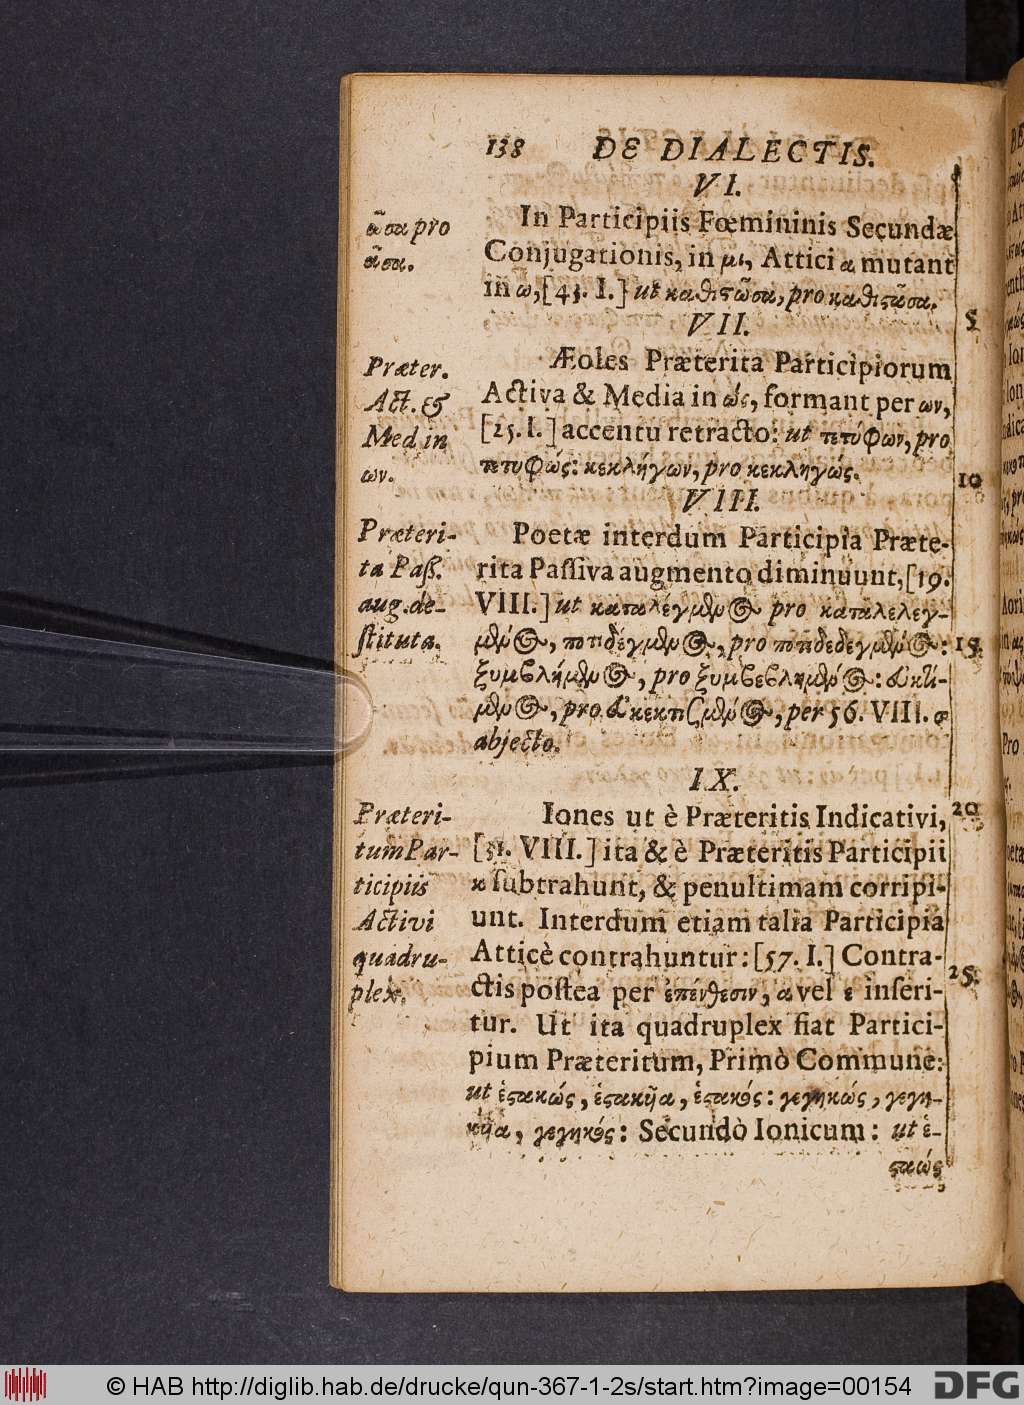 138 DE DIALECTIS.
VI.
ῶσα pro
ᾶσα.
In Participiis Fœmininis Secundæ
Conjugationis, in μι, Attici α mutant
in ω, [43. I.] ut καθιϛῶσα, pro καθιϛᾶσα.
VII.
5
Præter.
Act. &
Med in
ων.
Æoles Præterita Participiorum
Activa & Media in ώς, formant per ων,
[25. I.] accentu retracto: ut τετύφων, pro
τετυφώς: κεκλήγων, pro κεκληγώς.
10
VIII.
Præteri-
ta Paß.
aug. de-
ſtituta.
Poetæ interdum Participia Præte-
rita Paſſiva augmento diminuunt, [19.
VIII.] ut καταλέγμενος pro καταλελεγ-
μένος, ποτιδέγμενος, pro ποτιδεδεγμένος:
15.
ξυμβλήμενος, pro ξυμβεβλημένος: ἐυκτί-
μενος, pro ἐυκεκτισμένος, per 56. VIII. σ
abjecto.
IX.
Præteri-
tum Par-
ticipiis
Activi
quadru-
plex.
Iones ut è Præteritis Indicativi,
20
[51. VIII.] ita & è Præteritis Participii
κ ſubtrahunt, & penultimam corripi-
unt. Interdum etiam talia Participia
Atticè contrahuntur: [57. I.] Contra-
25.
ctis poſtea per ἐπένθεσιν, α vel ε inſeri-
tur. Ut ita quadruplex fiat Partici-
pium Præteritum, Primò Commune:
ut ἑϛακώς, ἑϛακυῖα, ἑϛακός: γεγηκώς, γεγη-
κυῖα, γεγηκός: Secundò Ionicum: ut ἑ-
ϛαώς
© HAB http://diglib.hab.de/drucke/qun-367-1-2s/start.htm?image=00154 DFG